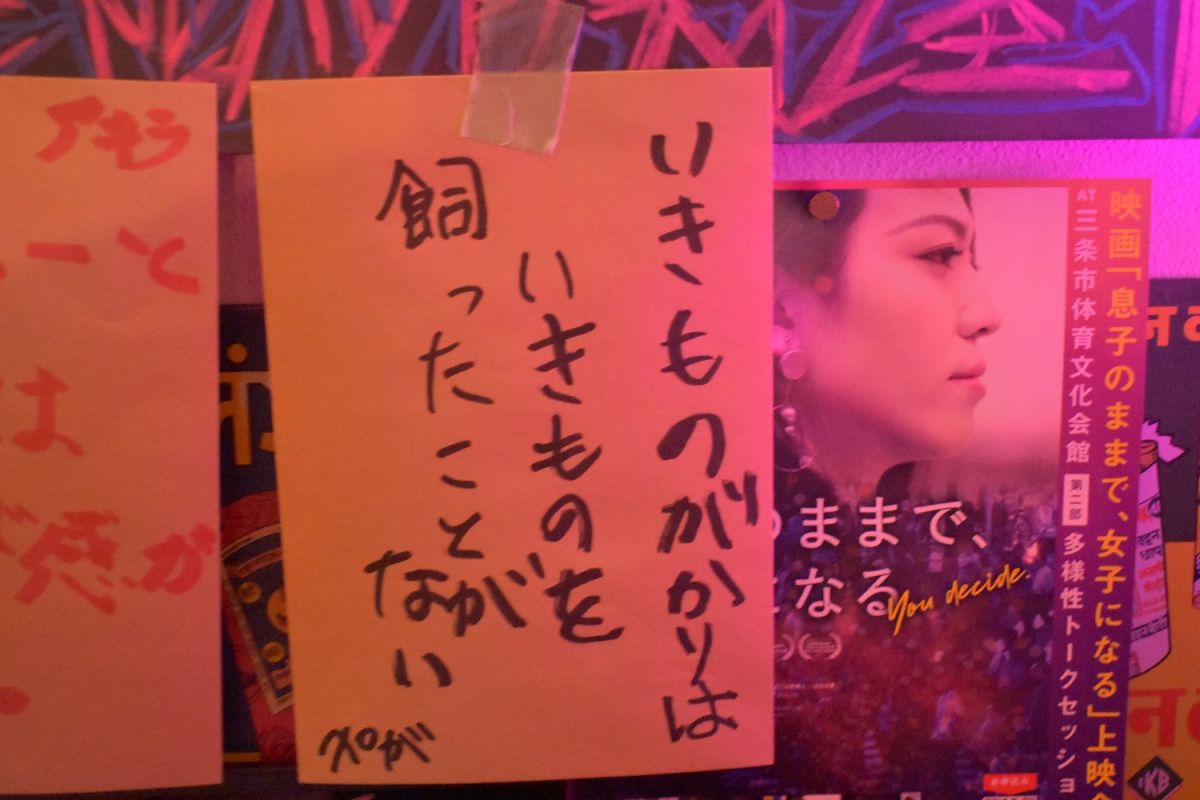 いきものがかりは
いきものを
飼ったことが
ない
スガ
映画「息子のままで、女子になる」上映
AT 三条市体育文化会館 第二部 多様性トークセッショ
ままで、
なる
You decide.
お申込み
アもう
ーと
は
感が
KB